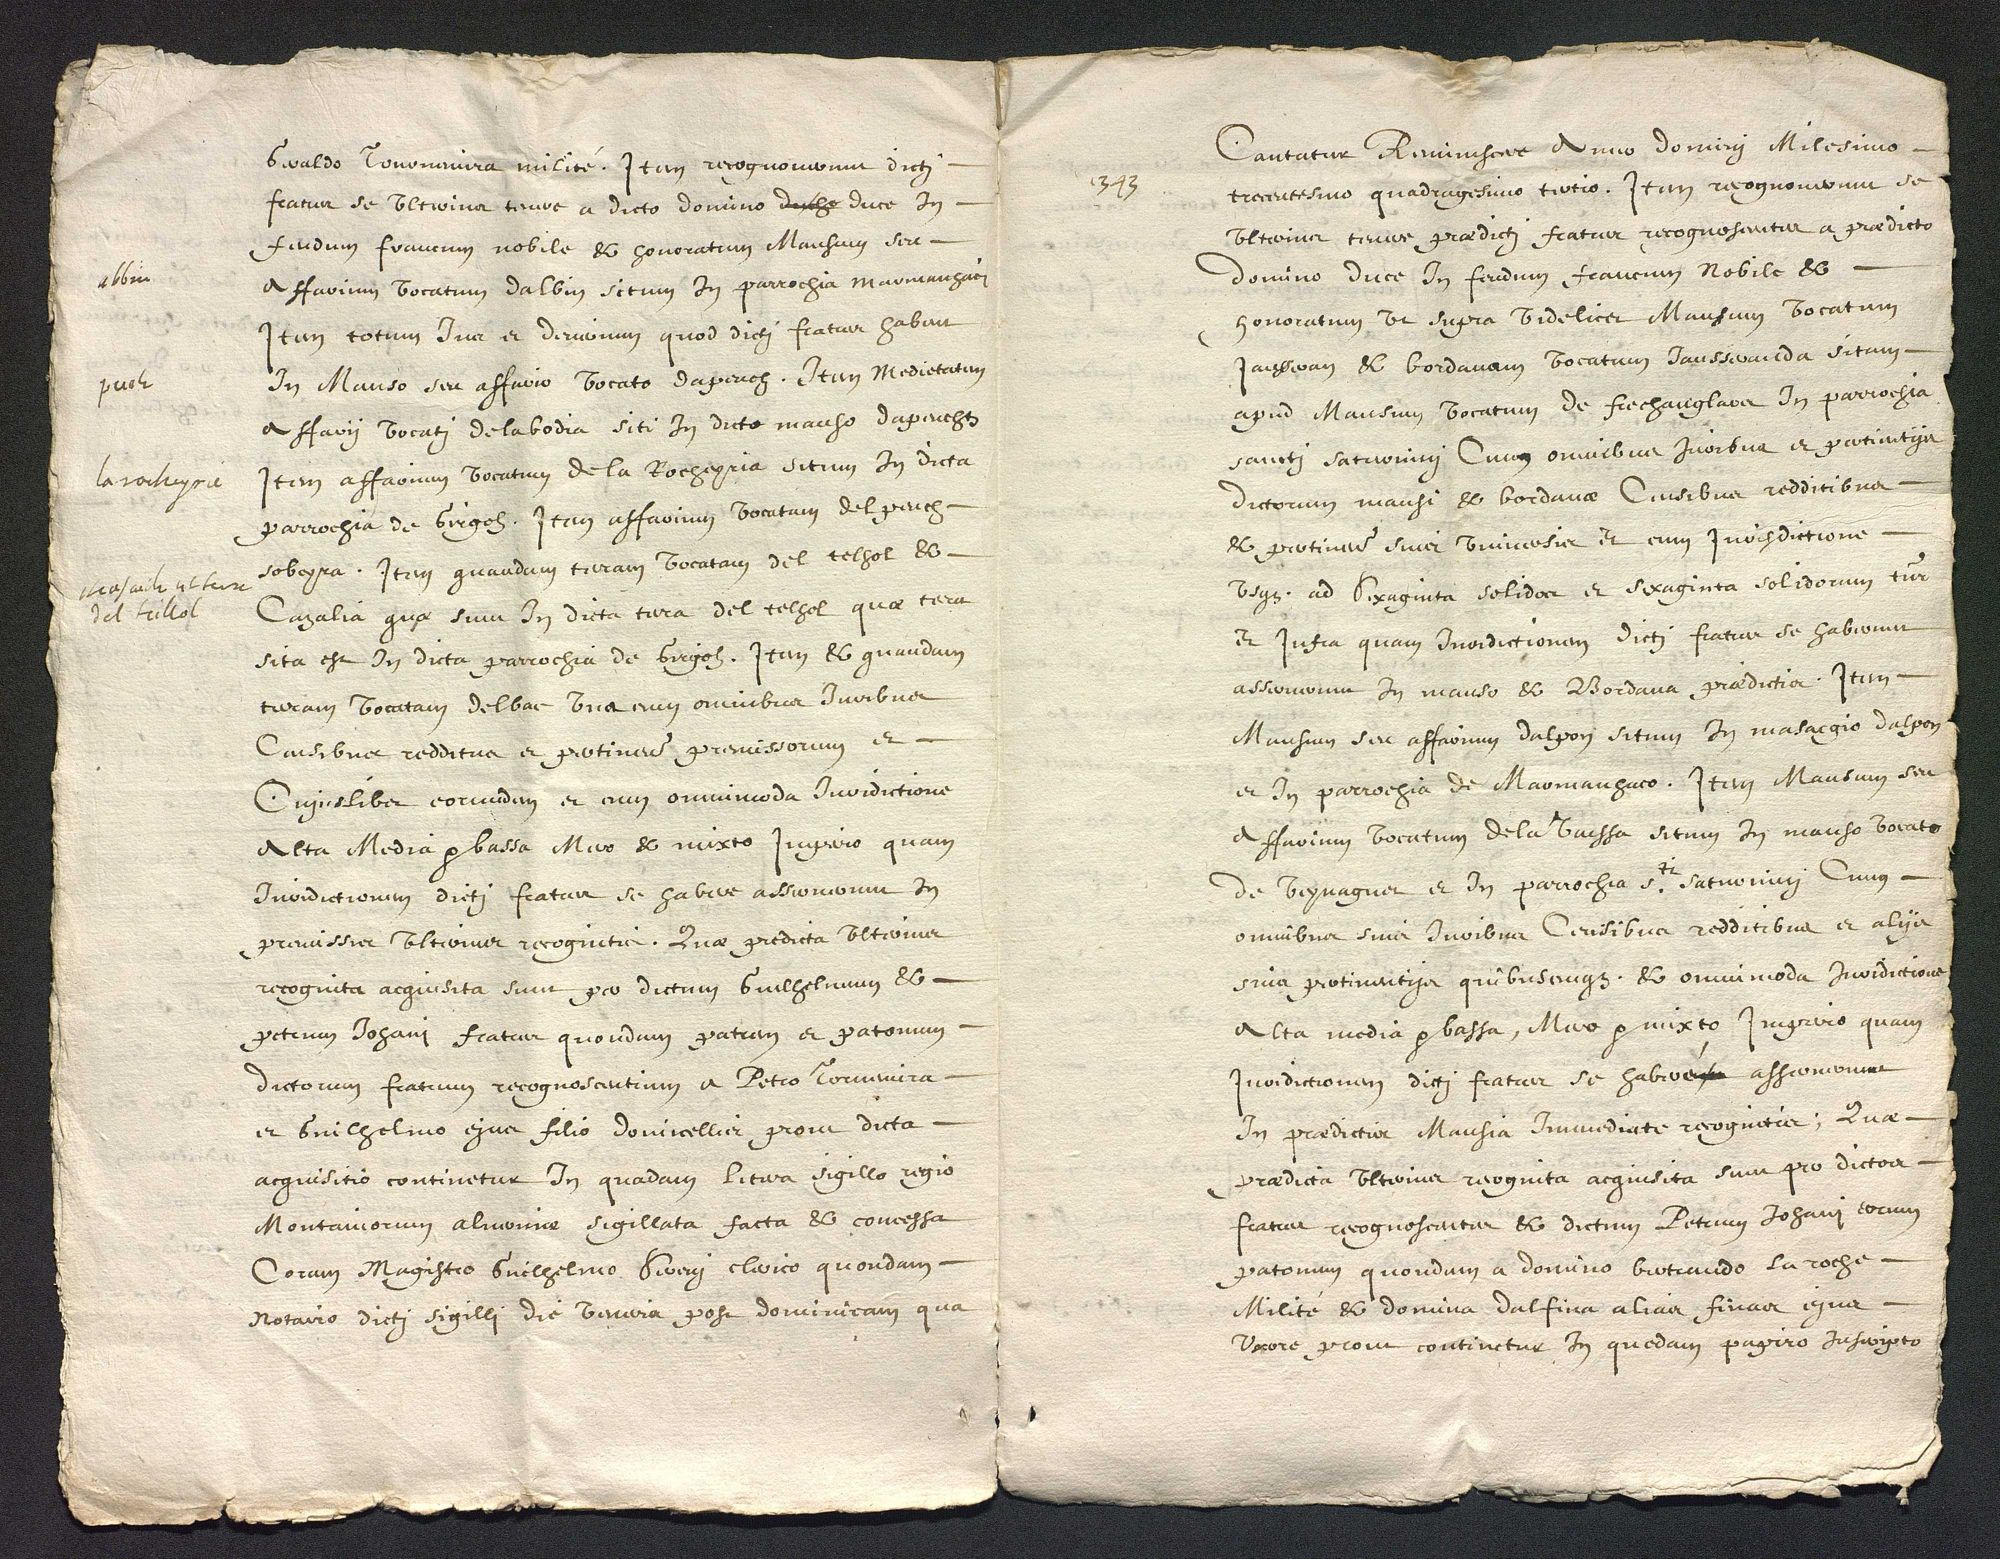 Geraldo Tornamira milité. Item recognoverunt dictj
fratres se ulterius tenere a dicto domino duce In
feudum francum nobile & honoratum Mansum seu
albin
Affarium vocatum dalbin situm In parrochia marmanhacj
Item totum Jus et deverium quod dictj fratres habent
puech
In Manso seu affario vocato dapuech. Item Medietatem
Affarij vocatj delabodia siti In dicto manso dapuech
la rocheyria
Item affarium vocatum de la Rocheyria situm In dicta
parrochia de Girgols. Item affarium vocatum del puech
sobeyra. Item quandam terram vocatam del telhol &
del telhol
Cazalia quæ sunt In dicta terra del telhol quæ terra
sita est In dicta parrochia de Girgols. Item & quandam
terram vocatam delbac una cum omnibus Juribus
Censibus redditus et pertinens premissorum et
Cujuslibet eorumdem et cum omnimoda Juridictione
Alta Media & bassa Mero & mixto Imperio quam
Juridictionem dictj fratres se habere asseruerunt In
premissis ulterius recognitis. Quæ predicta ulterius
recognita acquisita sunt per dictum Guilhelmum &
petrum Johanj fratres quondam patrem et patruum
dictorum fratrum recognoscentium a Petro Tornamira
et Guilhelmo ejus filio domicellis prout dicta
acquisitio continetur In quadam litera sigillo regio
Montanorum alverniæ sigillata facta & concessa
Coram Magistro Guilhelmo clerico quondam
Notario dictj sigillj die veneris post dominicam qua
Cantatur Reminiscere Anno dominj Milesimo
1343
trecentesimo quadragesimo tertio. Item recognoverunt se
ulterius tenere prædictj fratres recognoscentes a prædicto
domino duce In feudum francum Nobile &
honoratum ut supra videlicet Mansum vocatum
& bordariam vocatam sitam
apud Mansum vocatum de frechanglaves In parrochia
sanctj saturninj Cum omnibus Juribus et pertinentijs
dictorum mansi & bordariæ Censibus redditibus
& pertinens suis universis Et cum Jurisdictione
usq. ad sexaginta solidos et sexaginta solidorum tur
Et Infra quam Juridictionem dictj fratres se habere
asseruerunt In manso & Bordaria prædictis. Item
Mansum seu affarium dalpon situm In masagio dalpon
et In parrochia de Marmanhaco. Item Mansum seu
Affarium vocatum dela Vaissa situm In manso vocato
de veynagues et In parrochia s.ti saturninj Cum
omnibus suis Juribus Censibus redditibus et alijs
suis pertinentijs quibuscumq. & omnimoda Juridictione
Alta media & bassa, Mero & mixto Imperio quam
Juridictionem dictj fratres se habere asseruerunt
In prædictis Mansis Immediate recognitis; Quæ
prædicta ulterius recognita acquisita sunt pro dictos
fratres recognoscentes & dictum Petrum Johanj eorum
patruum quondam a domino bertrando la roche
Milité & domina dalfina alias finas ejus
Uxore prout continetur In quodam papiro Inscripto